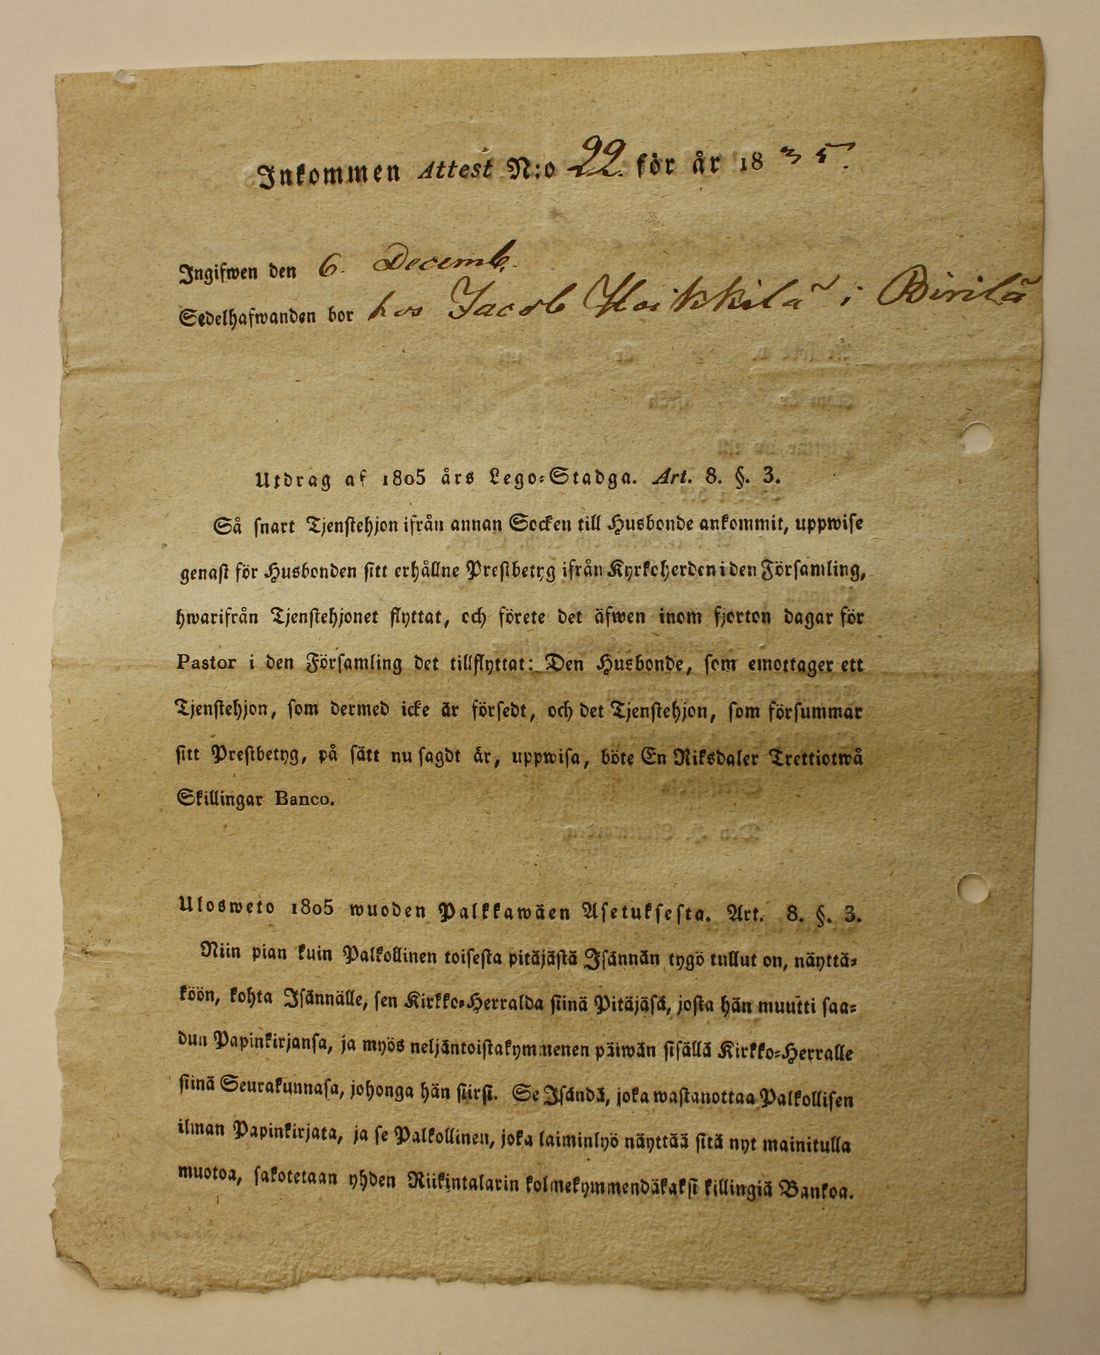 Inkommen Attest N:o 22. för år 1835.
Ingifwen den 6. Decemb.
Sedelhafwanden bor hos Jacob Heikkilä i Birilä
Utdrag af 1805 års Lego-Stadga. Art. 8. §. 3.
Så snart Tjenstehjon ifrån annan Socken till Husbonde ankommit, uppwise
genast för Husbonden sitt erhållne Prestbetyg ifrån Kyrkoherden i den Församling,
hwarifrån Tjenstehjonet flyttat, och förete det äfwen inom fjorton dagar för
Pastor i den Församling det tillflyttat: Den Husbonde, som emottager ett
Tjenstehjon, som dermed icke är försedt, och det Tjenstehjon, som försummar
sitt Prestbetyg, på sätt nu sagdt är, uppwisa, böte En Riksdaler Trettiotwå
Skillingar Banco.
Ulosweto 1805 wuoden Palkkawäen Asetuksesta. Art. 8. §. 3.
Niin pian kuin Palkollinen toisesta pitäjästä Isännän tygö tullut on, näyttä-
köön, kohta Isännälle, sen Kirkko-Herralda siinä Pitäjäsä, josta hän muutti saa-
dun Papinkirjansa, ja myös neljäntoistakymmenen päiwän sisällä Kirkko-Herralle
siinä Seurakunnasa, johonga hän siirsi. Se Isändä, joka wastanottaa Palkollisen
ilman Papinkirjata, ja se Palkollinen, joka laiminlyö näyttää sitä nyt mainitulla
muotoa, sakotetaan yhden Riikintalarin kolmekymmendäkaksi killingiä Bankoa.